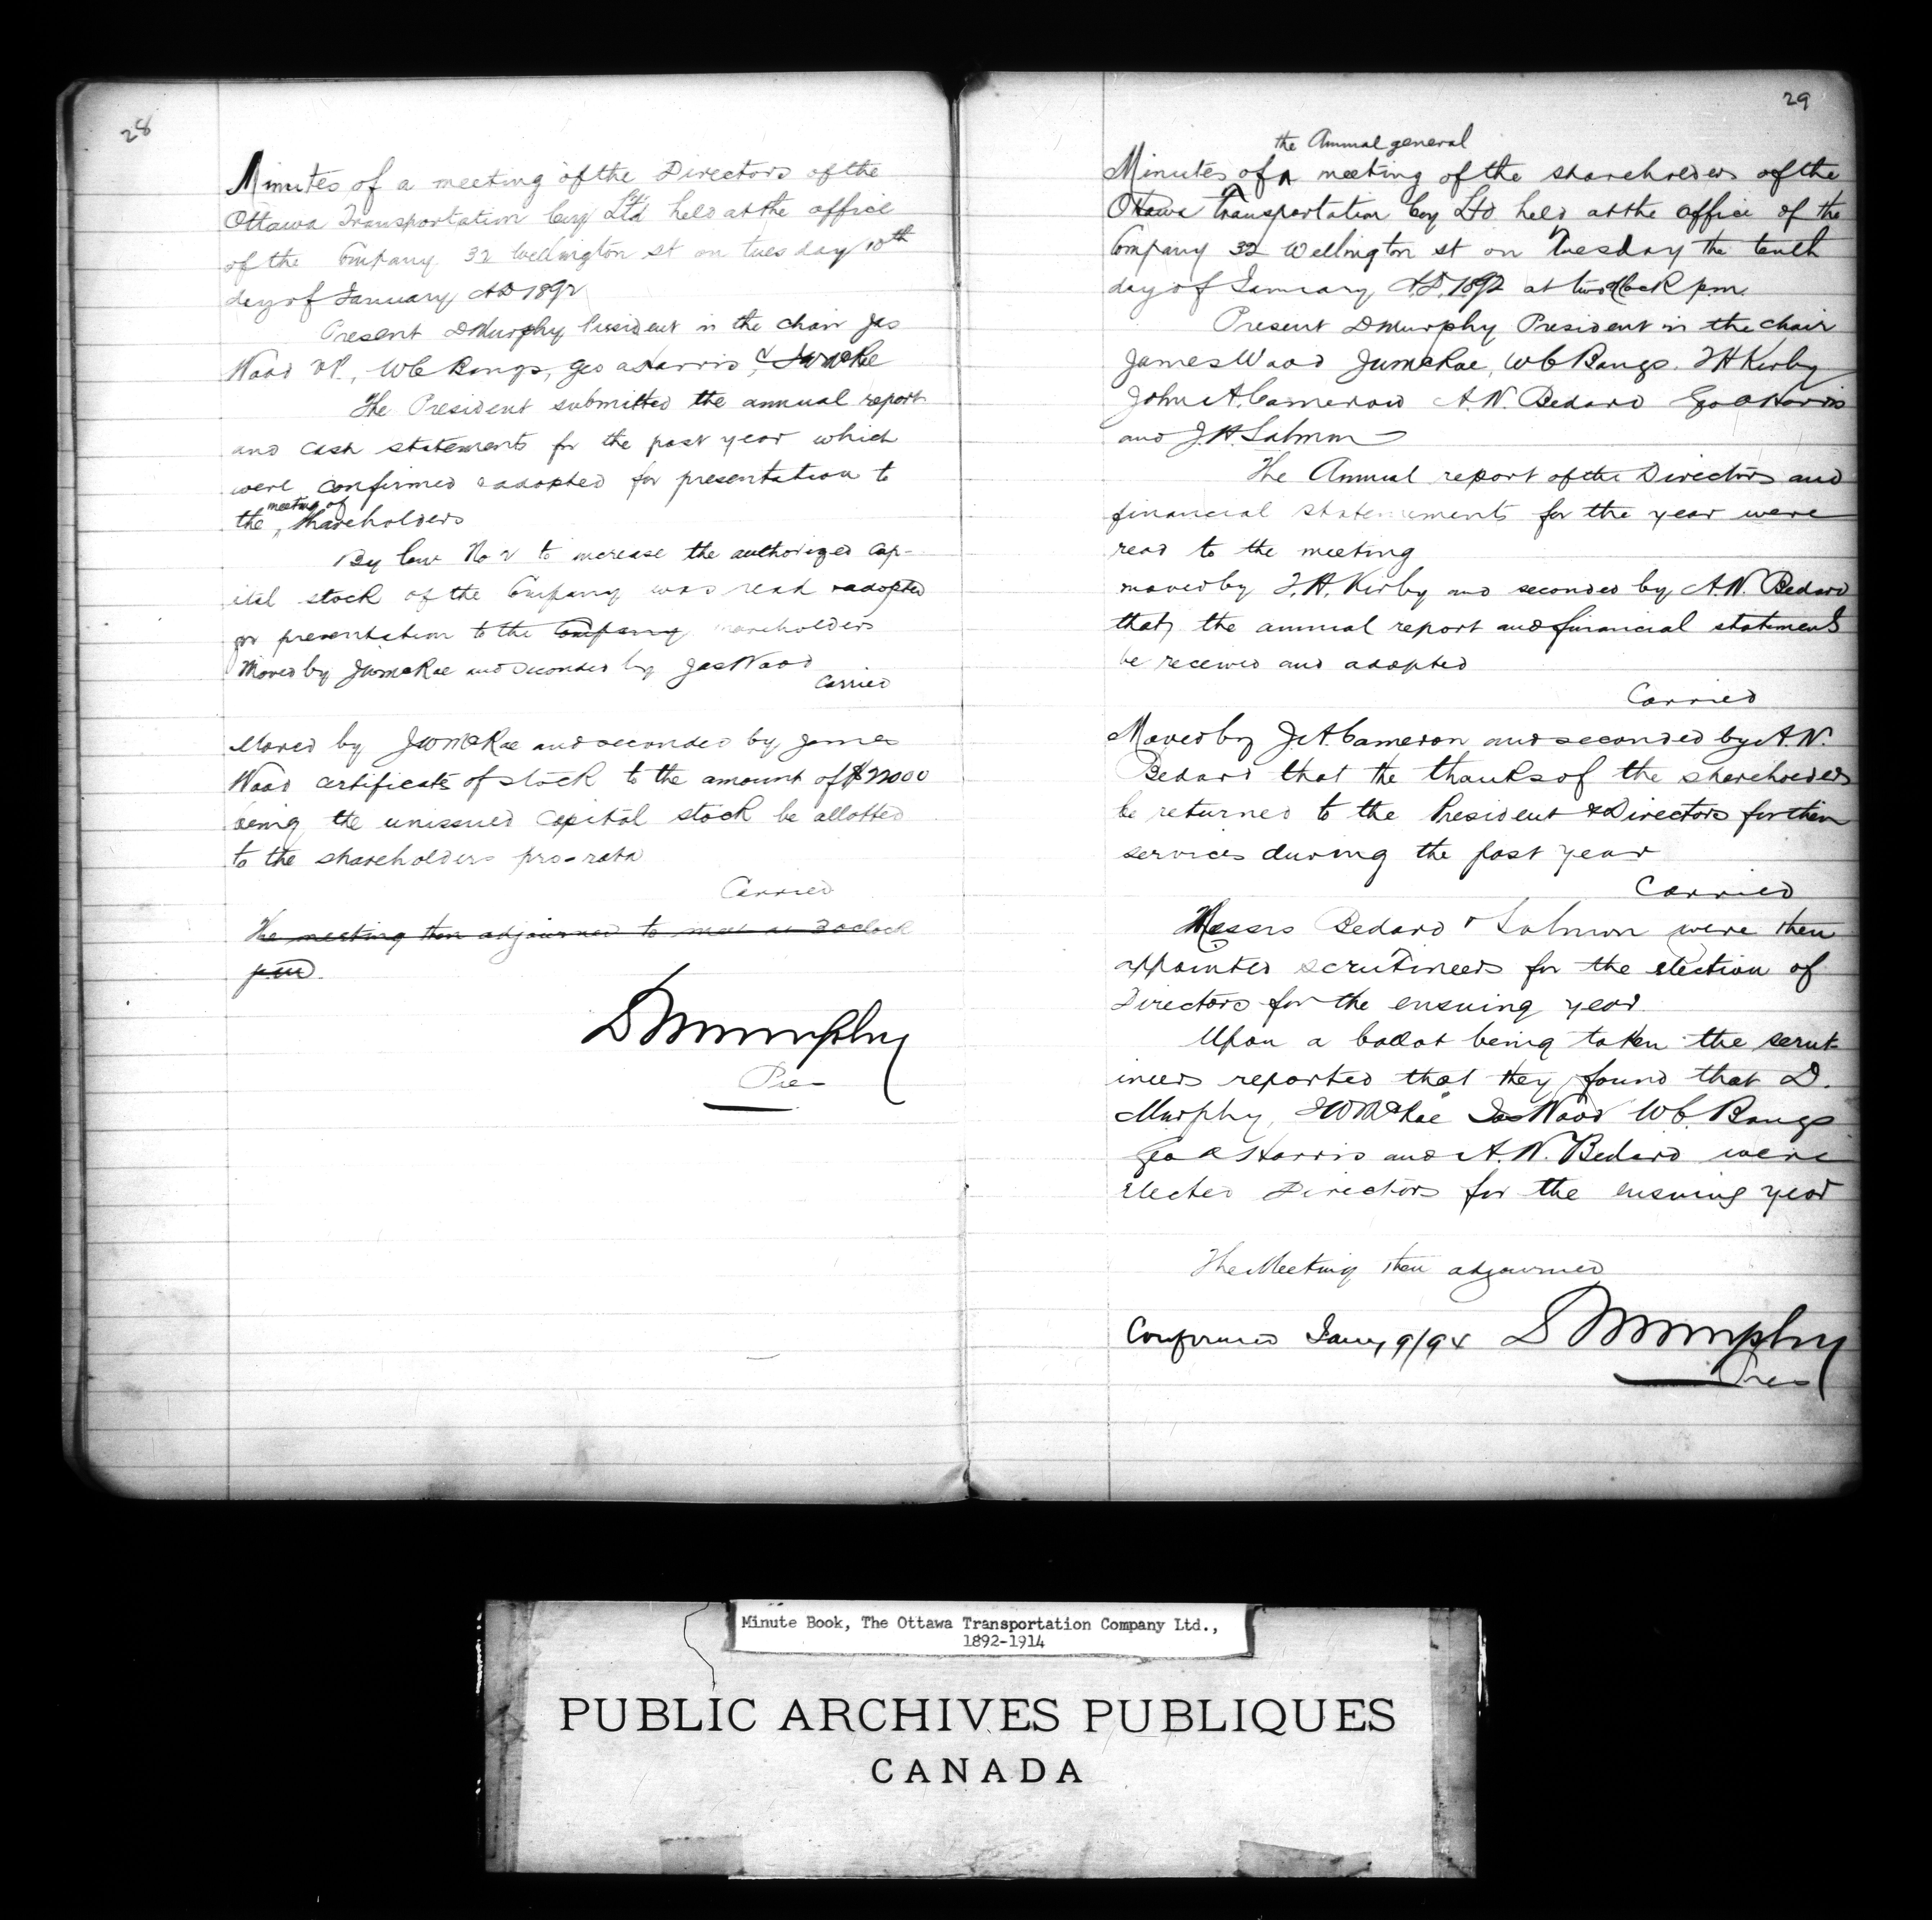 28
Minutes of a meeting of the Directors of the
Ottawa Transportation Coy Ltd held at the office
of the Company 32 Wellington st on tuesday 10th
day of January AD 1892
Present D Murphy President in the chair Jas
Wood VP., W C Bangs, Geo a Harris, & J W McRae
The President submitted the annual report
and cash statements for the past year which
were confirmed & adopted for presentation to
meeting of
the shareholders
By law No 2 to increase the authorized cap-
ital stock of the Company was read & adopted
for presentation to the Company shareholders
Moved by J W McRae and seconded by Jas Wood
Carried
Moved by J W McRae and seconded by James
Wood certificates of stock to the amount of $22000
being the unissued capital stock be allotted
to the shareholders pro-rata
Carried
The meeting then adjourned to meet at 2 oclock
p.m.
D Murphy
Pres
29
the Annual general
Minutes of a meeting of the shareholders of the
Ottawa Transportation Coy Ltd held at the office of the
Company 32 Wellington st on Tuesday the tenth
day of January A.D. 1892 at two oclock p.m.
Present D Murphy President in the chair
James Wood J W McRae, W C Bangs. T H Kirby
John A. Cameron A. N. Bedard Geo a Harris
and J. H. Salmon
The Annual report of the Directors and
financial statements for the year were
read to the meeting
moved by T. H. Kirby and seconded by A. N. Bedard
that the annual report and financial statement
be received and adopted
Carried
Moved by J. A. Cameron and seconded by A. N.
Bedard that the thanks of the shareholders
be returned to the President & Directors for their
services during the past year
Carried
Messrs Bedard & Salmon were then
appointed scrutineers for the election of
Directors for the ensuing year
Upon a ballot being taken the scrut-
ineers reported that they found that D.
Murphy, J W McRae Jas Wood W C. Bangs
Geo a Harris and A. N. Bedard were
elected Directors for the ensuing year
The Meeting then adjourned
Confirmed Jany 9/94 D Murphy
Pres
Minute Book, The Ottawa Transportation Company Ltd.,
1892-1914
PUBLIC ARCHIVES PUBLIQUES
CANADA